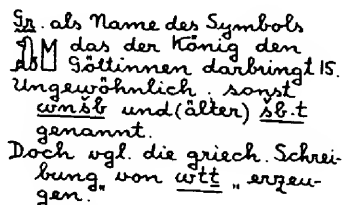 Gr. als Name des Symbols
das der König den
Göttinnen darbringt 15.
Ungewöhnlich, sonst
wnšb und (älter) šb.t
genannt.
Doch vgl. die griech. Schrei-
bung von wtṯ „erzeu-
gen."